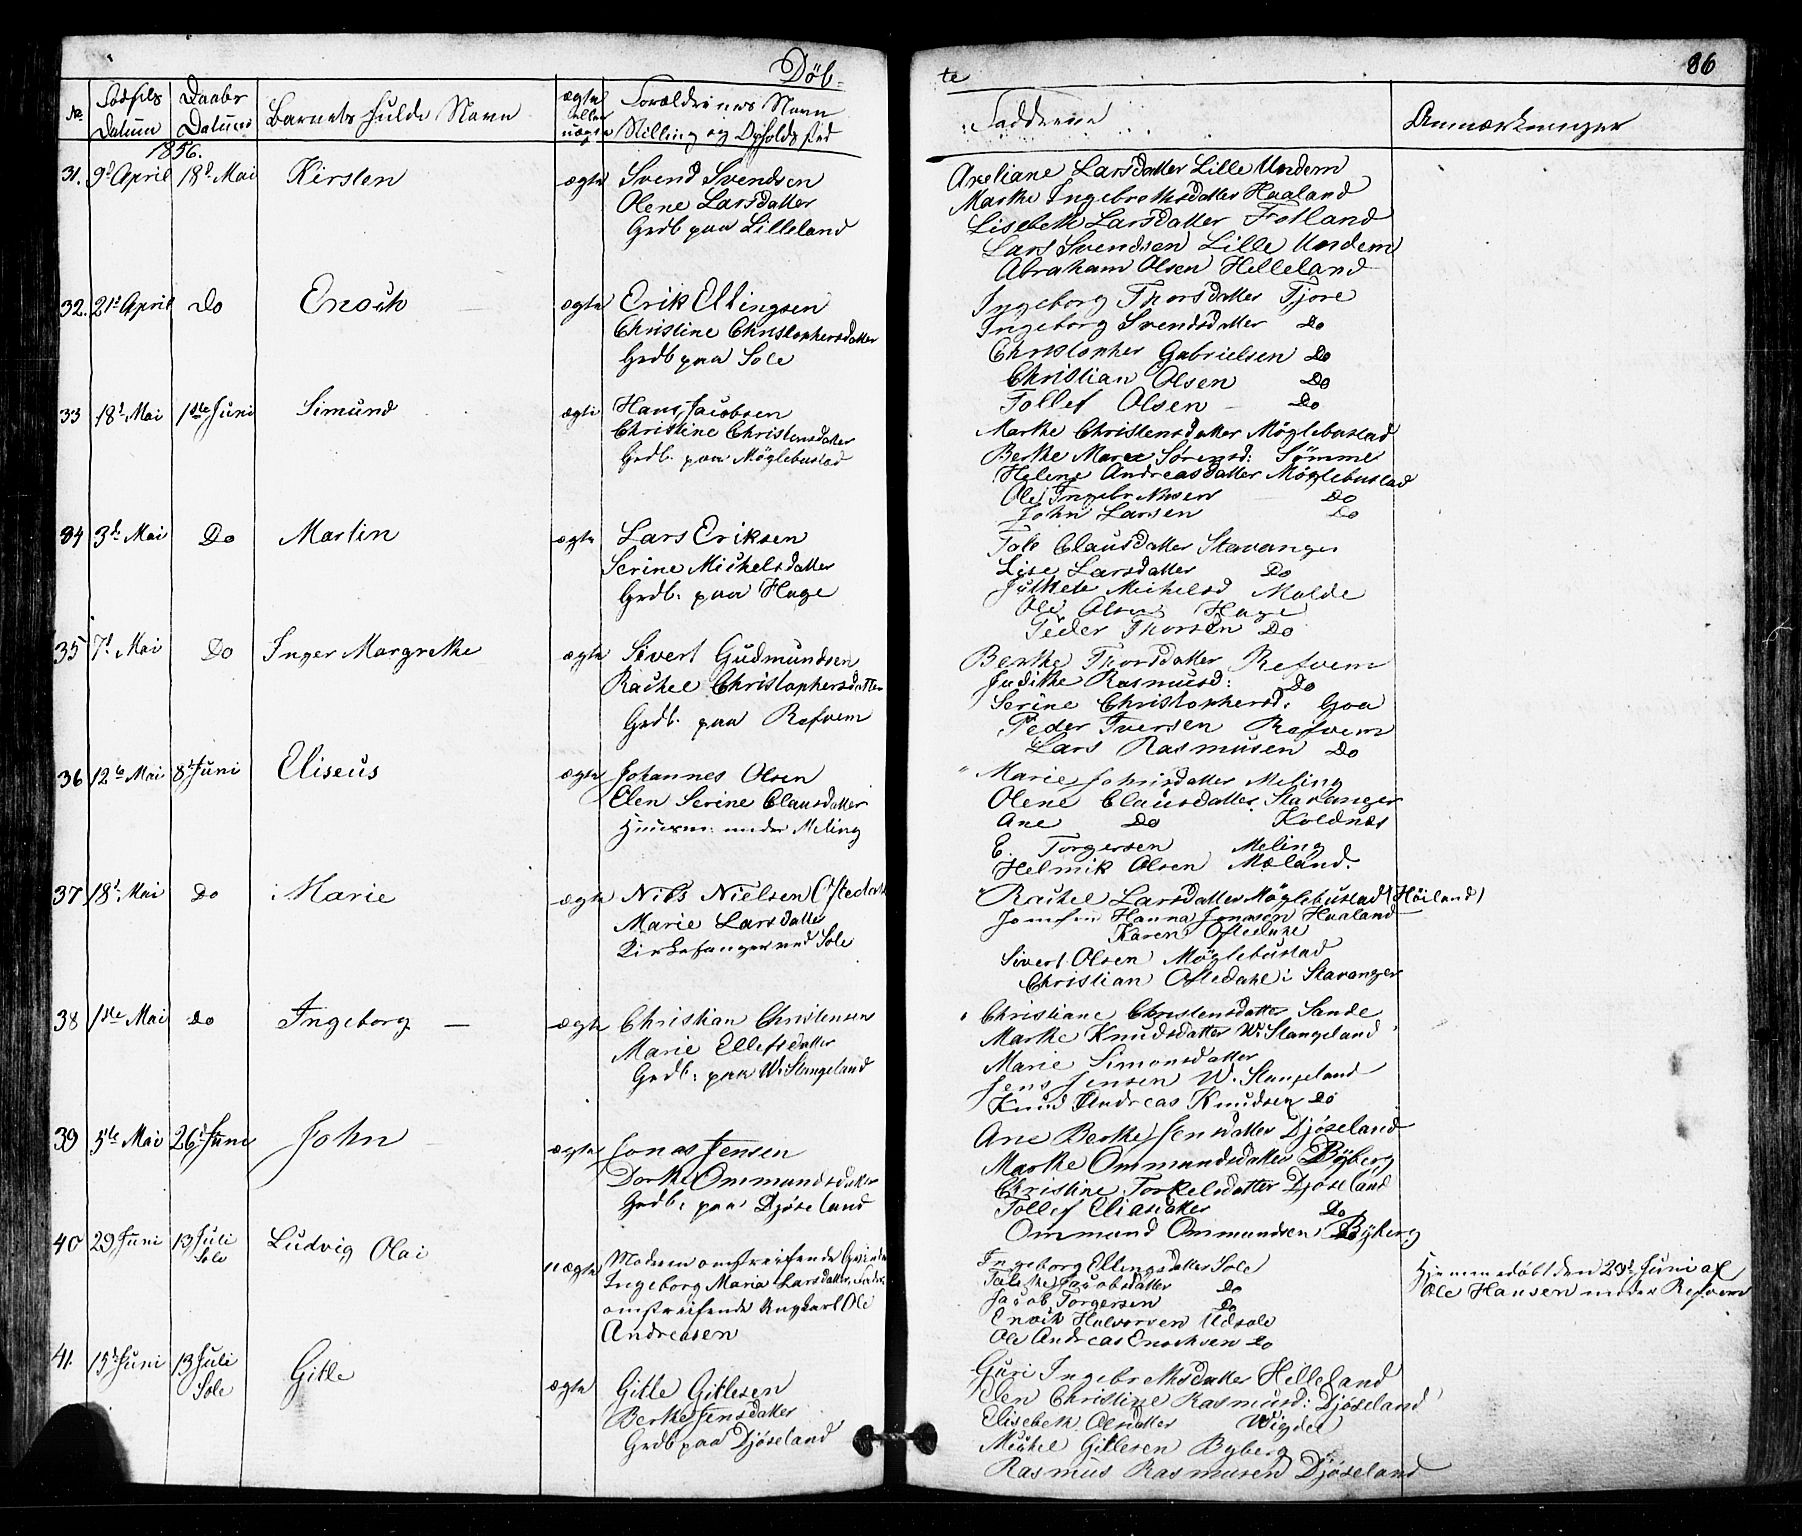 Döb-
te
86
No
Fødsels
Datum
Daabs
Datum
Barnets fulde Navn
ægte
eller
uægte
Forældrenes Navn
Stilling og Opholdssted
Faddere
Anmærkninger
1856.
31. 9d April 18d Mai Kirsten ægte Svend Svendsen
Olene Larsdatter
Grdb paa Lilleland
Axeliane Larsdatter Lille Undem
Marthe Ingebrethsdatter Haaland
Lisebeth Larsdatter Fotland
Lars Svendsen Lille Undem
Abraham Olsen Helleland
32. 21d April Do Enoch ægte Erik Ellingsen
Christine Christophersdatter
Grdb paa Sole
Ingeborg Thorsdatter Tjore
Ingeborg Svendsdatter Do
Christopher Gabrielsen Do
Christian Olsen Do
Tollef Olsen Do
33 18d Mai 1ste Juni Simund ægte Hans Jacobsen
Christine Christensdatter
Grdb. paa Möglebustad
Marthe Christensdatter Möglebustad
Berthe Marie Sörensd: Sömme
Helene Andreasdatter Möglebustad
Ole Ingebrethsen Do
John Larsen Do
34 3d Mai Do Martin ægte Lars Eriksen
Serine Michelsdatter
Grdb. paa Hage
Tale Clausdatter Stavanger
Lise Larsdatter Do
Michelsd Molde
Ole Olsen Hage
Peder Thorsen Do
35 7d Mai Do Inger Margrethe ægte Sivert Gudmundsen
Rachel Christophersdatter
Grdb. paa Refvem
Berthe Thorsdatter Refvem
Judithe Rasmusd: Do
Serine Christophersd. Goa
Peder Iversen Refvem
Lars Rasmusen Do
36 12te Mai 8d Juni Eliseus ægte Johannes Olsen
Elen Serine Clausdatter
Huusm: under Meling
Marie Johnsdatter Meling
Olene Clausdatter Stavanger
Ane Do Koldnæs
E. Torgersen Meling
Helmik Olsen Mæland.
37 18d Mai Do Marie ægte Nils Nielsen Oftedahl
Marie Larsdatter
Kirkesanger ved Sole
Rachel Larsdatter Möglebustad (Höiland)
Jomfru Hanna Jonasen Haaland
Karen Oftedahl
Sivert Olsen Möglebustad
Christian Oftedahl i Stavanger
38 1ste Mai Do Ingeborg ægte Christian Christensen
Marie Ellefsdatter
Grdb: paa W. Stangeland
Christiane Christensdatter Sande
Marthe Knudsdatter W. Stangeland
Marie Simonsdatter
Jens Jensen W. Stangeland
Knud Andreas Knudsen Do
39 5te Mai 26d Juni John ægte Jonas Jensen
Dorthe Ommundsdatter
Grdb. paa Djöseland
Ane Berthe Jensdatter Djöseland
Marthe Ommundsdatter Byberg
Christine Torkelsdatter Djöseland
Tollef Eliasen Do
Ommund Ommundsen Byberg
40 29 Juni 13 Juli
Sole Ludvig Olai uægte Moderen omstreifende Qvinde
Ingeborg Maria Larsdatter,
omstreifende Ungkarl Ole
Andreasen
Ingeborg Ellingsdatter Sole
Jacobsdatter Do
Jacob Torgersen Do
Enoch Halvorsen Udsole
Ole Andreas Enochsen Do
Hjemmedöbt den 29d Juni af
Ole Hansen under Refvem
41. 15d Juni 13 Juli
Sole Gitle ægte Gitle Gitlesen
Berthe Jensdatter
Grdb paa Djöseland
Guri Ingebrethsdatter Helleland
Elen Christine Rasmusd: Djöseland
Elisebeth Olsdatter Wigdel
Michel Gitlesen Byberg
Rasmus Rasmusen Djöseland